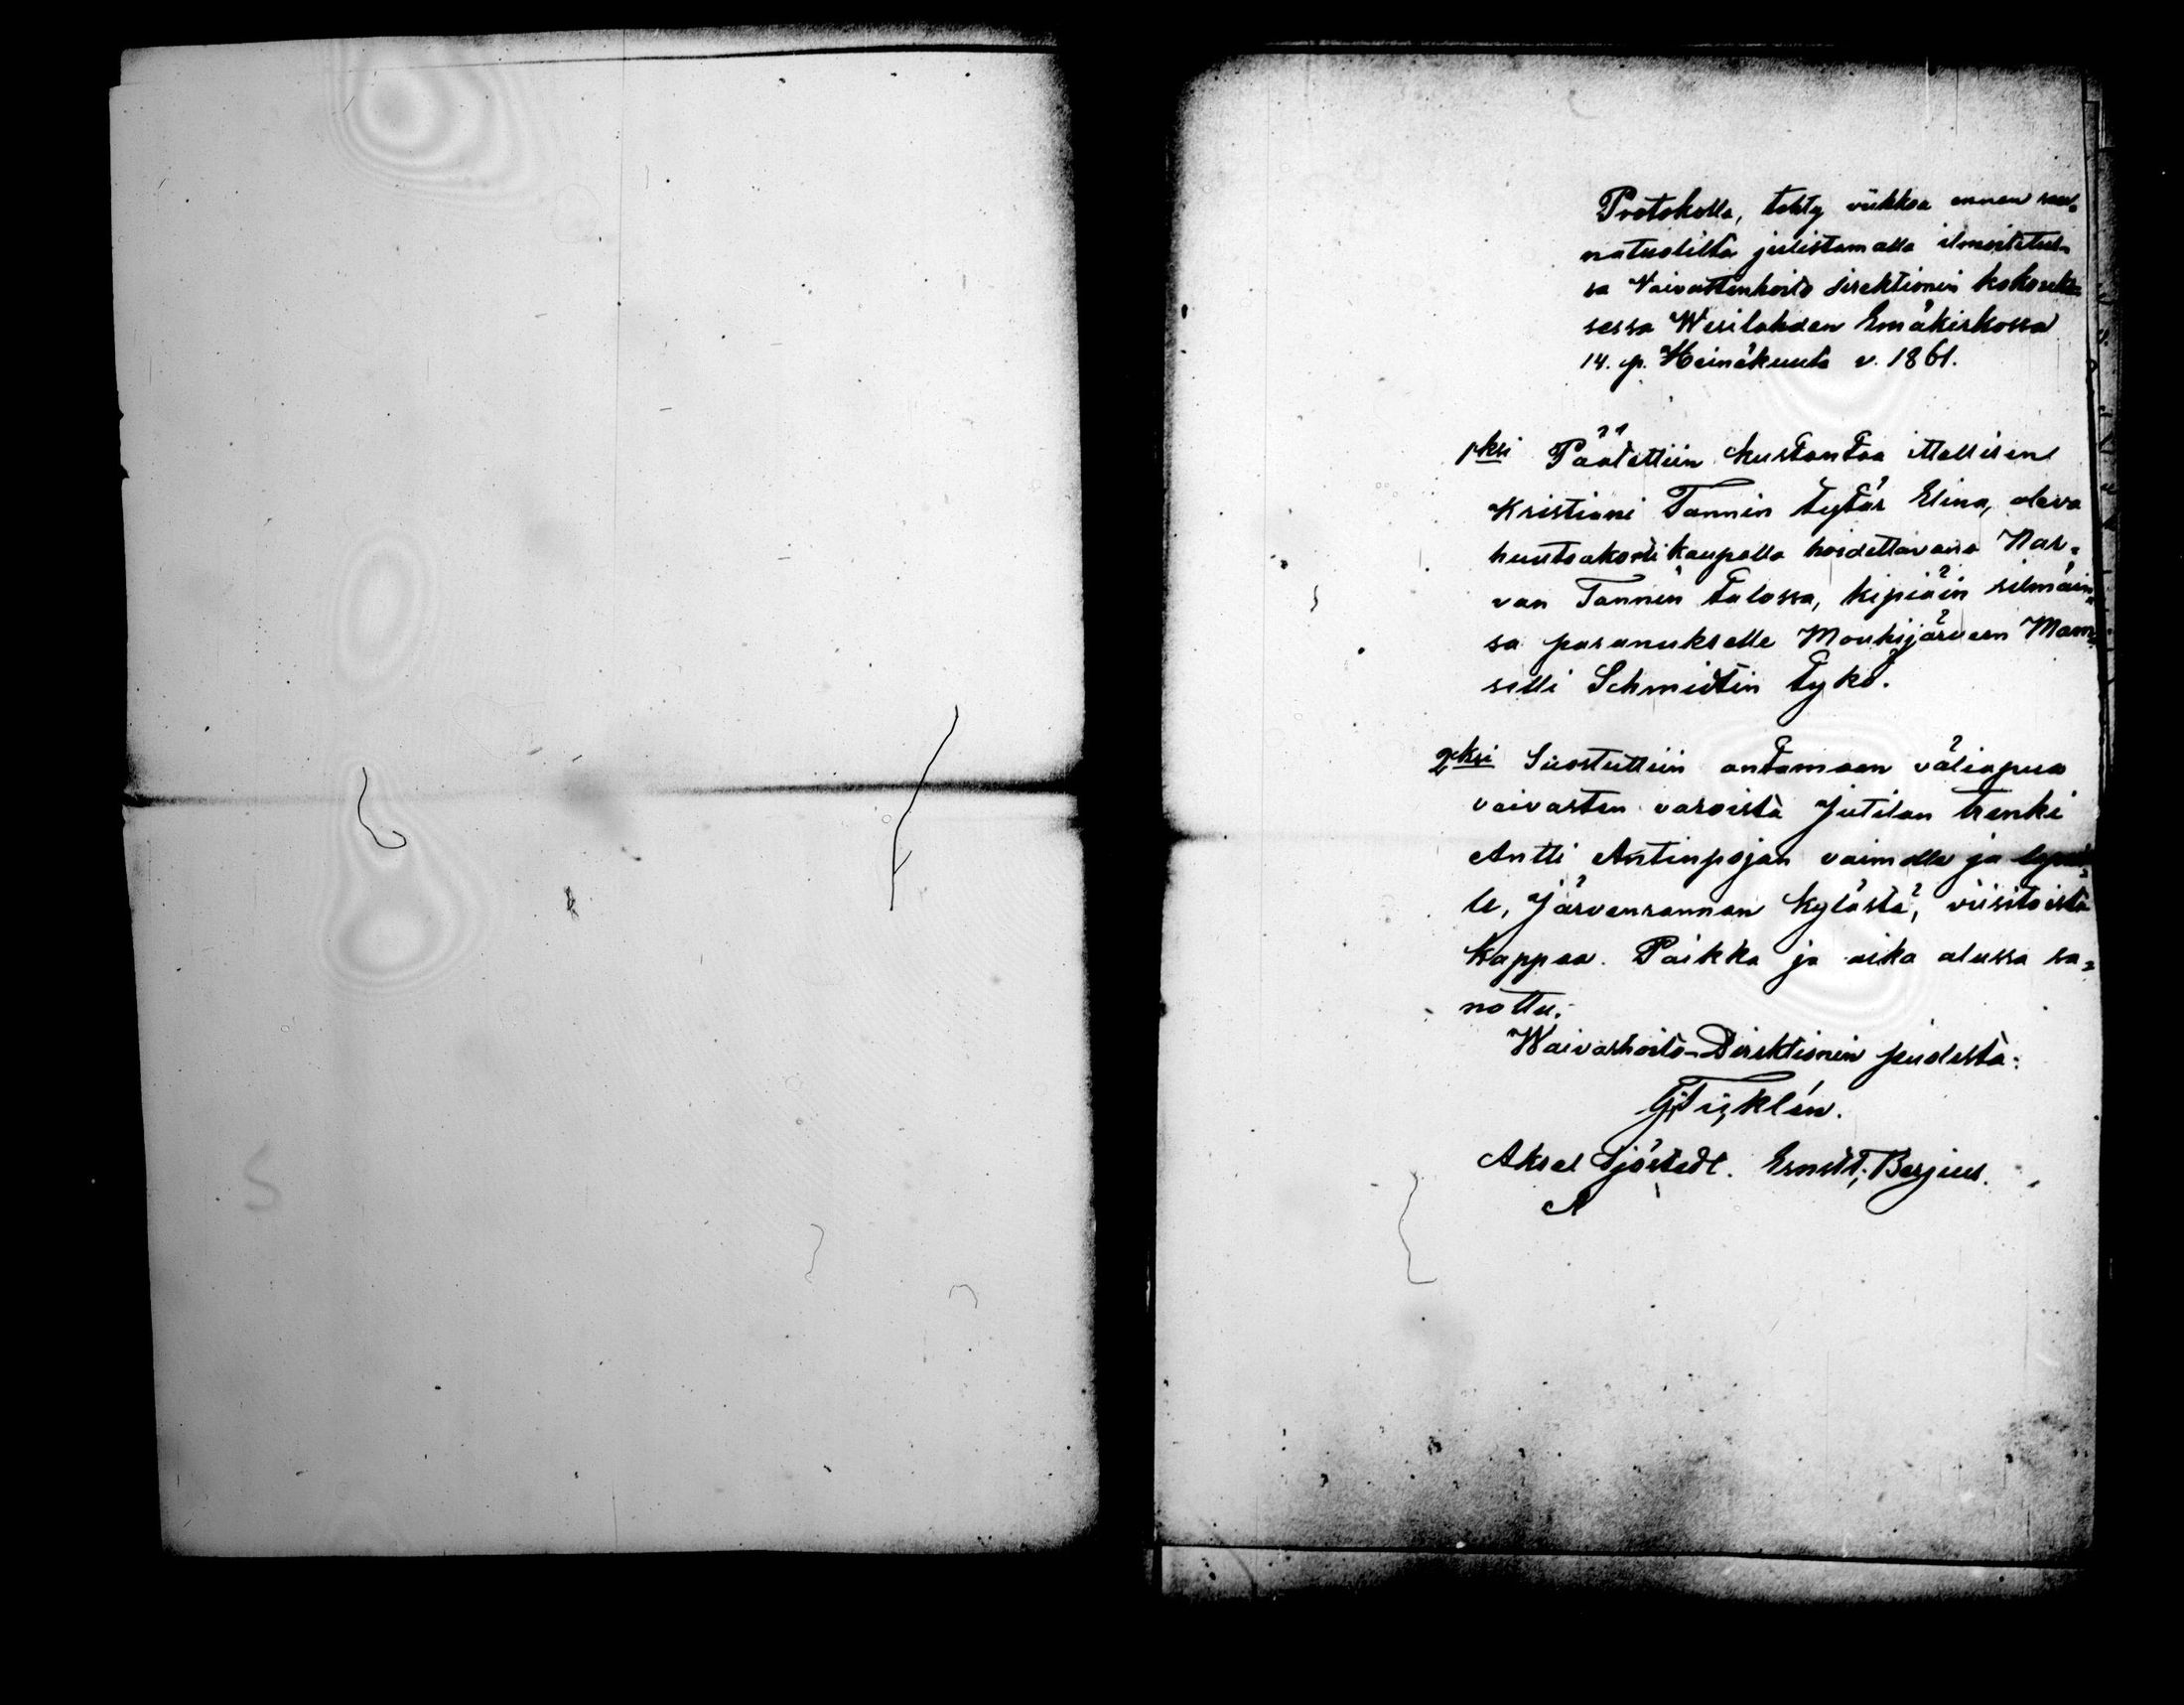 Protokolla, tehty viikkoa ennen saar-
natuolilta julistamalla ilmoitetus-
sa Vaivastenhoito direktionin kokouk-
sessa Wesilahden Emäkirkossa
14. p. Heinäkuuta v. 1861.
1ksi Päätettiin kustantaa itellisen
Kristiani Tannin tytär Elina, oleva
huutoakortikaupalla hoidettavana Nar-
van Tannin talossa, kipiäin silmäin-
sä paranukselle Mouhijärven Mam-
selli Schmidtin tykö.
2ksi Suostuttiin antamaan väliapua
vaivasten varoista Jutilan trenki
Antti Antinpojan vaimolle ja lapsil-
le, Järvenrannan kylästä, viisitoista
kappaa. Paikka ja aika alussa sa-
nottu.
Waivashoito-Direktionin puolesta:
G. Ticklén.
Aksel Sjöstedt. Ernst Bergius.